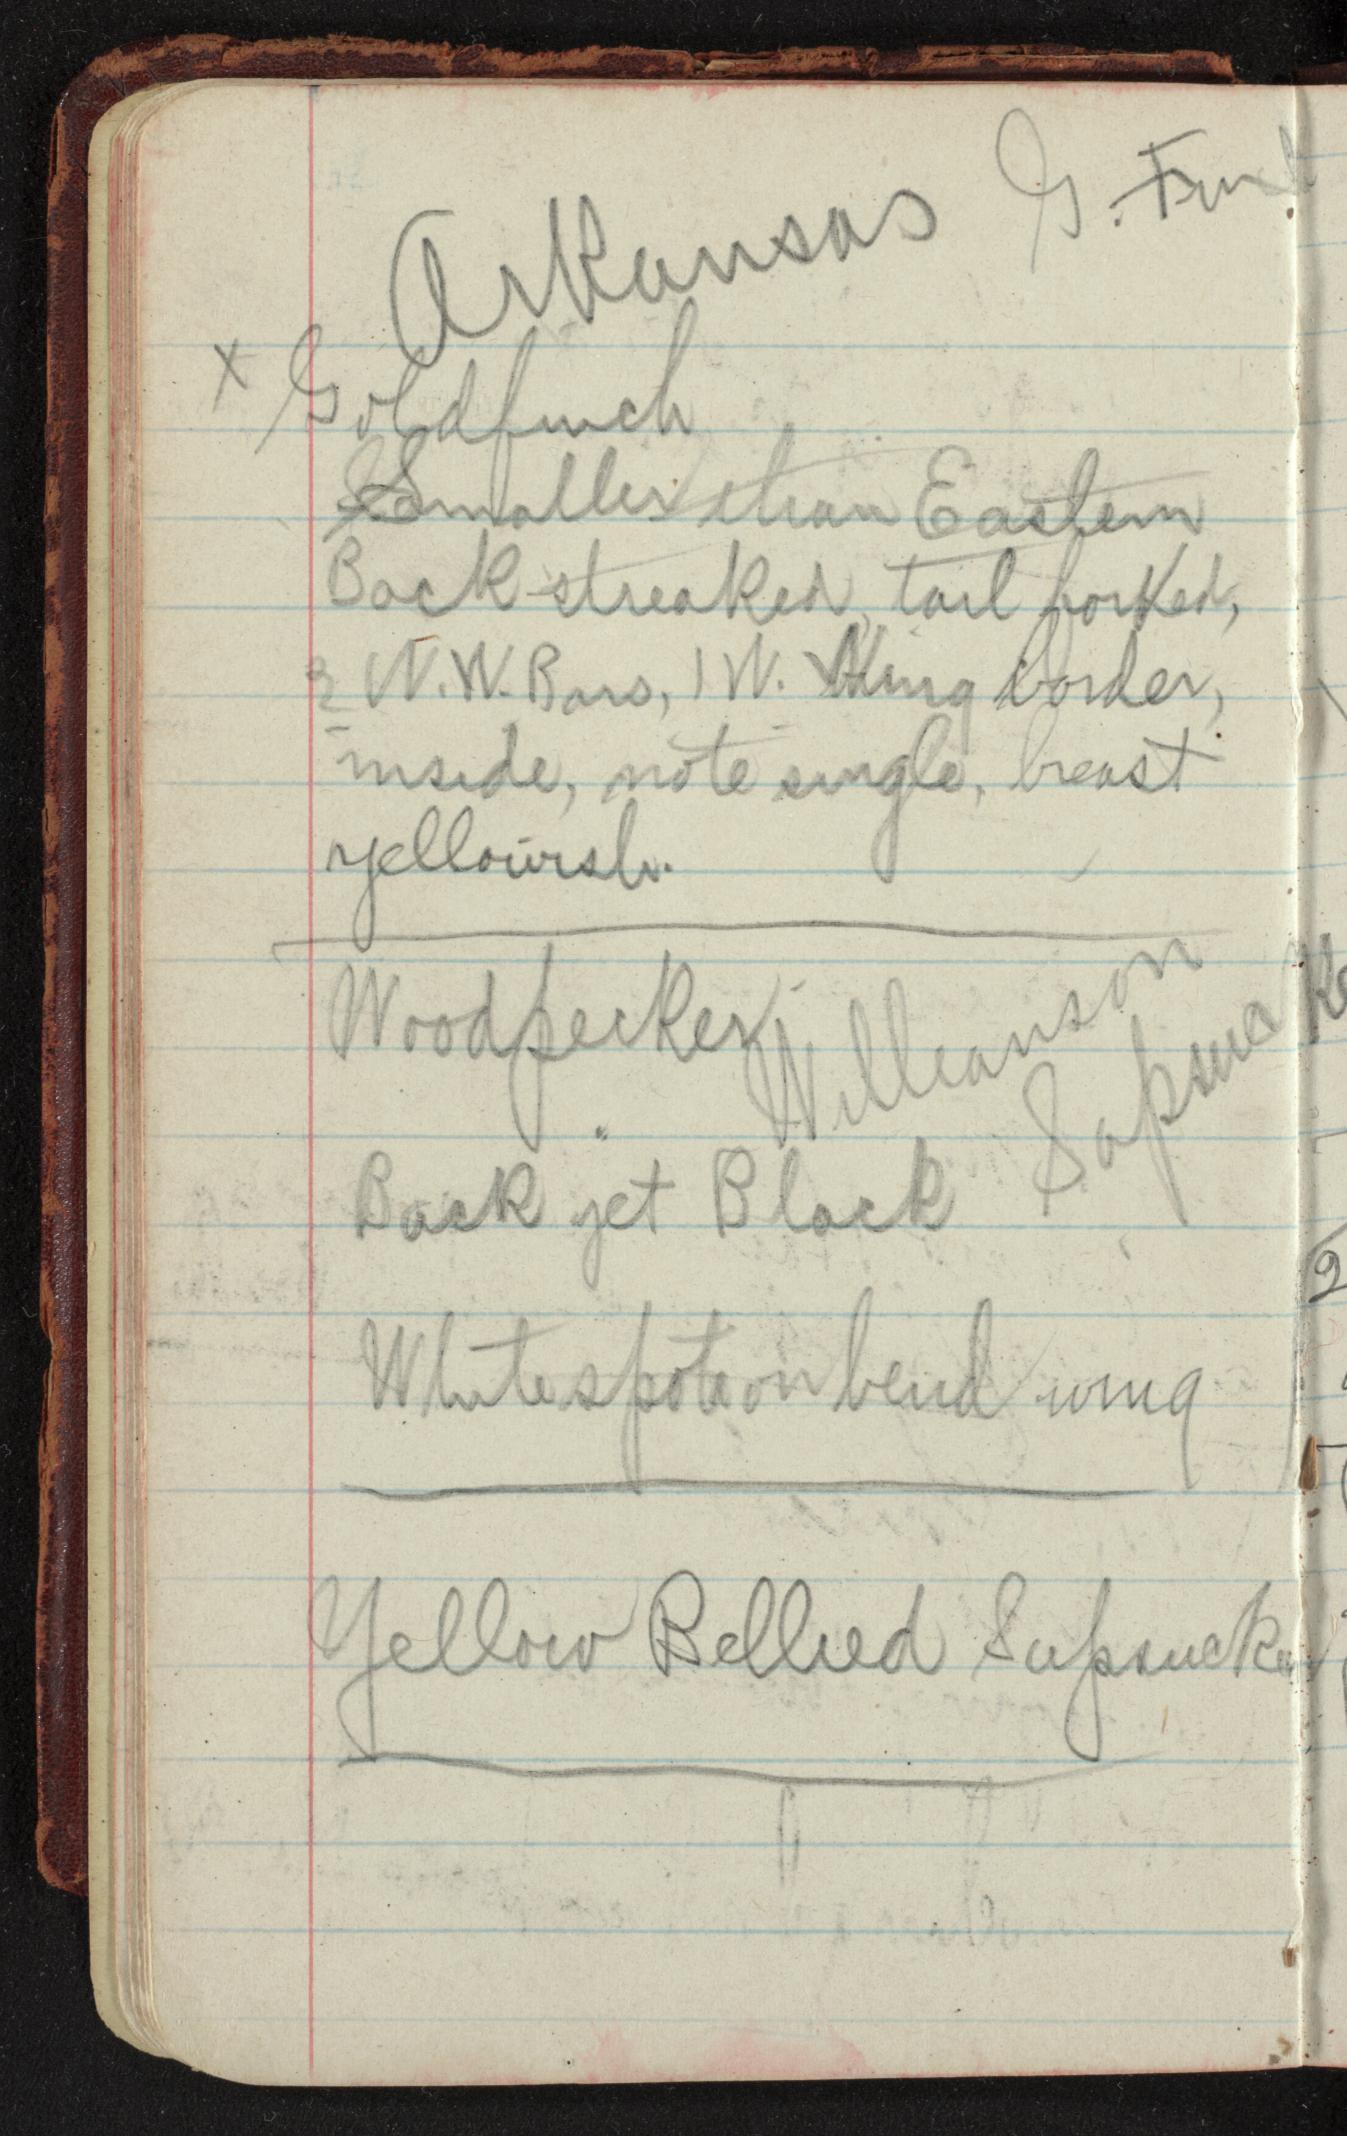 Arkansas G. Finch
x Goldfinch
Smaller than Eastern
Back streaked, tail forked,
2 W.W. Bars, 1 W. Wing border,
inside, note single, breast
yellowish.
Woodpecker Williamson
Sapsucker
Back jet Black
White spot on bend wing
Yellow Bellied Sapsucker